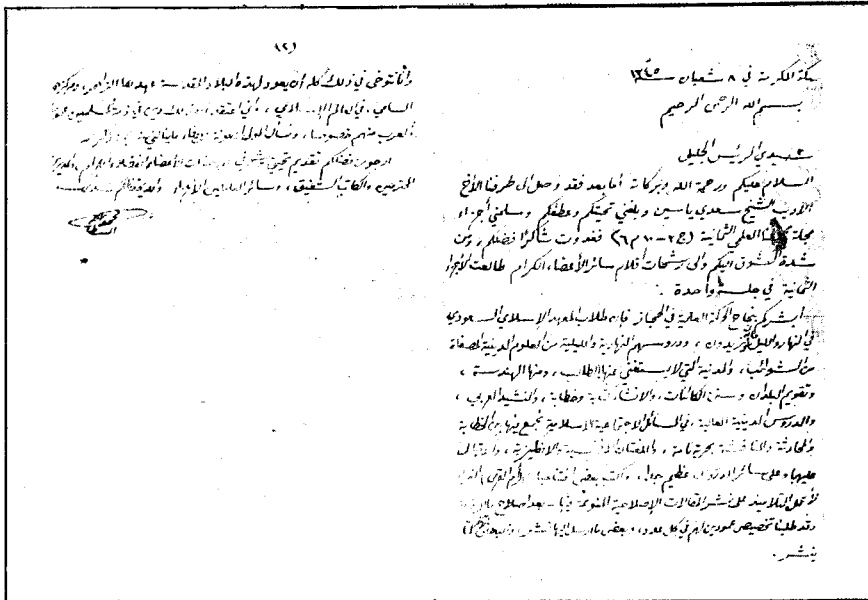 مكة المكرمة في ٨ شعبان سنة ١٣٤٥
بسم الله الرحمن الرحيم
سيدي الرئيس الجليل
السلام عليكم ورحمة الله وبركاته أما بعد فقد وصل الى طرفنا الأخ
الأديب الشيخ سعدي ياسين وبلغني تحيتكم وعطفكم وسلمني أجزاء
مجلة العلمي الثمانية (ج ٣ - ١٠ م ٦) فغدوت شاكرًا فضلكم، ومن
شدة الشوق اليكم والى رشحات أقلام سائر الأعضاء الكرام طالعت الأجزاء
الثمانية في جلسة واحدة .
أبشركم بنجاح الحركة العلمية في الحجاز فإن طلاب المعهد الإسلامي السعودي
في النهار والليل يزيدون ، ودروسهم النهارية والليلية من العلوم الدينية المصفاة
من الشوائب ، والمدنية التي لا يستغني عنها الطالب ، ومنها الهندسة ،
وتقويم البلدان وسنن الكائنات ، والانشاء كتابة وخطابة ، والنشيد العربي ،
والدروس الدينية العالية ، في المسائل الاجتماعية الاسلامية نجمع فيها بين الخطابة
والمحادثة والمناقشة بحرية تامة ، واللغتان والانكليزية ، والاقبال
عليها وعلى سائر الدروس عظيم جدا ، وكتبت بعض أم القرى
لأحمل التلاميذ على نشر المقالات الإصلاحية المتنوعة فيها - بعد اصلاح
وقد طلبنا تخصيص عمودين لهم في كل عدد ، وبعض ما أرسل اليها نشر ،
ينشر .
(٢)
وانا نتوخى في ذلك كله أن يعود لهذه البلاد المقدسة عهدها الزاهر ، ومركزها
السامي ، في العالم الإسلامي ، في ذمة المسلمين
العرب منهم خصوصا ، ونسأل المولى
أرجو من فضلكم تقديم تحيتي الأعضاء
المحترمين والكاتب الشفيق ، وسائر العاملين الأبرار